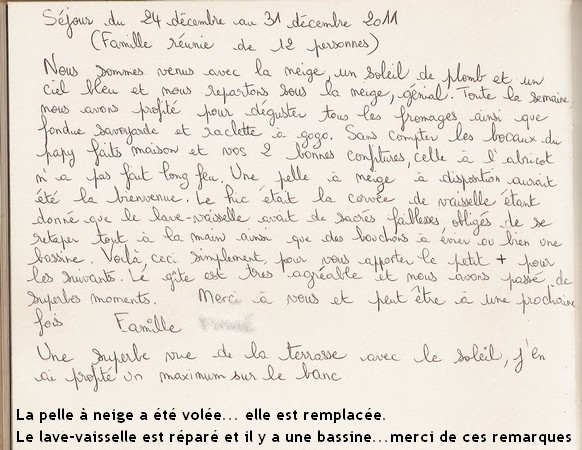 Séjour du 24 décembre au 31 décembre 2011
(Famille réunie de 12 personnes)
Nous sommes venus avec la neige, un soleil de plomb et un
ciel bleu et nous repartons sous la neige, génial. Toute la semaine
nous avons profité pour déguster tous les fromages ainsi que
fondue savoyarde et raclette à gogo. Sans compter les bocaux du
papy faits maison et vos 2 bonnes confitures, celle à l'abricot
n'a pas fait long feu. Une pelle à neige à disposition aurait
été la bienvenue. Le hic était la corvée de vaisselle étant
donné que le lave-vaisselle avait de sacrés faiblesses obligés de se
retaper tout à la main ainsi que des bouchons à évier ou bien une
bassine. Voilà ceci simplement pour vous apporter le petit + pour
les suivants. Le gîte est très agréable et nous avons passé de
superbes moments. Merci à vous et peut être à une prochaine
fois Famille
Une superbe vue de la terrasse avec le soleil, j'en
ai profité un maximum sur le banc
La pelle à neige a été volée... elle est remplacée.
Le lave-vaisselle est réparé et il y a une bassine...merci de ces remarques